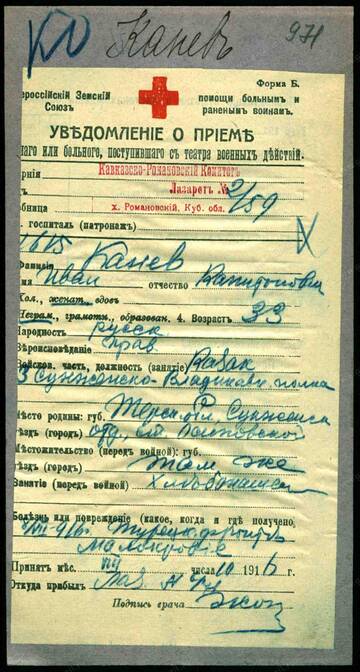 КО Канев 971
Форма Б.
ероссійскій Земскій помощи больнымъ и
Союзъ раненымъ воинамъ.
УВѢДОМЛЕНІЕ О ПРІЕМѢ
наго или больного, поступившаго съ театра военныхъ дѣйствій.
рнія Кавказско-Романовскій Комитетъ
Лазаретъ № 2/59
бница х. Романовскій, Куб. обл.
госпиталь (патронажъ)
1615
Фамилія Канев
мя Иван отчество Капитонович
Хол., женат., вдовъ
Неграм., грамотн., образован. 4. Возрастъ 33
Народность русск.
Вѣроисповѣданіе прав.
Войсков. часть, должность (занятіе) Казак
3 Сунженско-Владикавк. полка
Мѣсто родины: губ. Терск. обл. Сунженск
ѣздъ (городъ) отд.
Мѣстожительство (передъ войной): губ.
ѣздъ (городъ) там же
Занятіе (передъ войной) Хлебопашец
Болѣзнь или поврежденіе (какое, когда и гдѣ получено,
Турецк. фронт
малокровіе
Принятъ мѣс. числа 10 1916 г.
Откуда прибылъ
Подпись врача